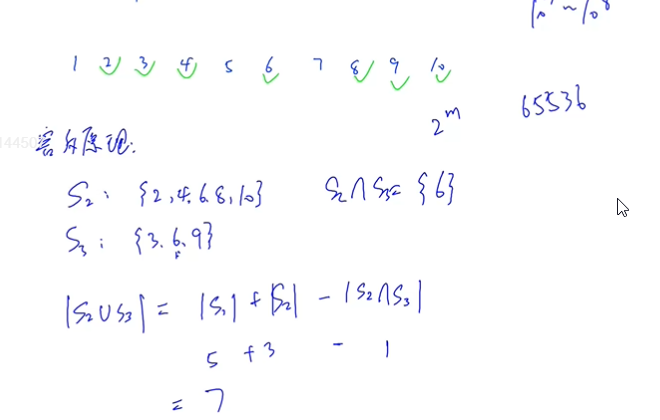 10⁷ ~ 10⁸
1 2 3 4 5 6 7 8 9 10
2^m 65536
容斥原理:
S₂: {2,4.6.8,10} S₂∩S₃= {6}
S₃: {3.6.9}
|S₂∪S₃| = |S₁| + |S₂| - |S₂∩S₃|
5 + 3 - 1
= 7